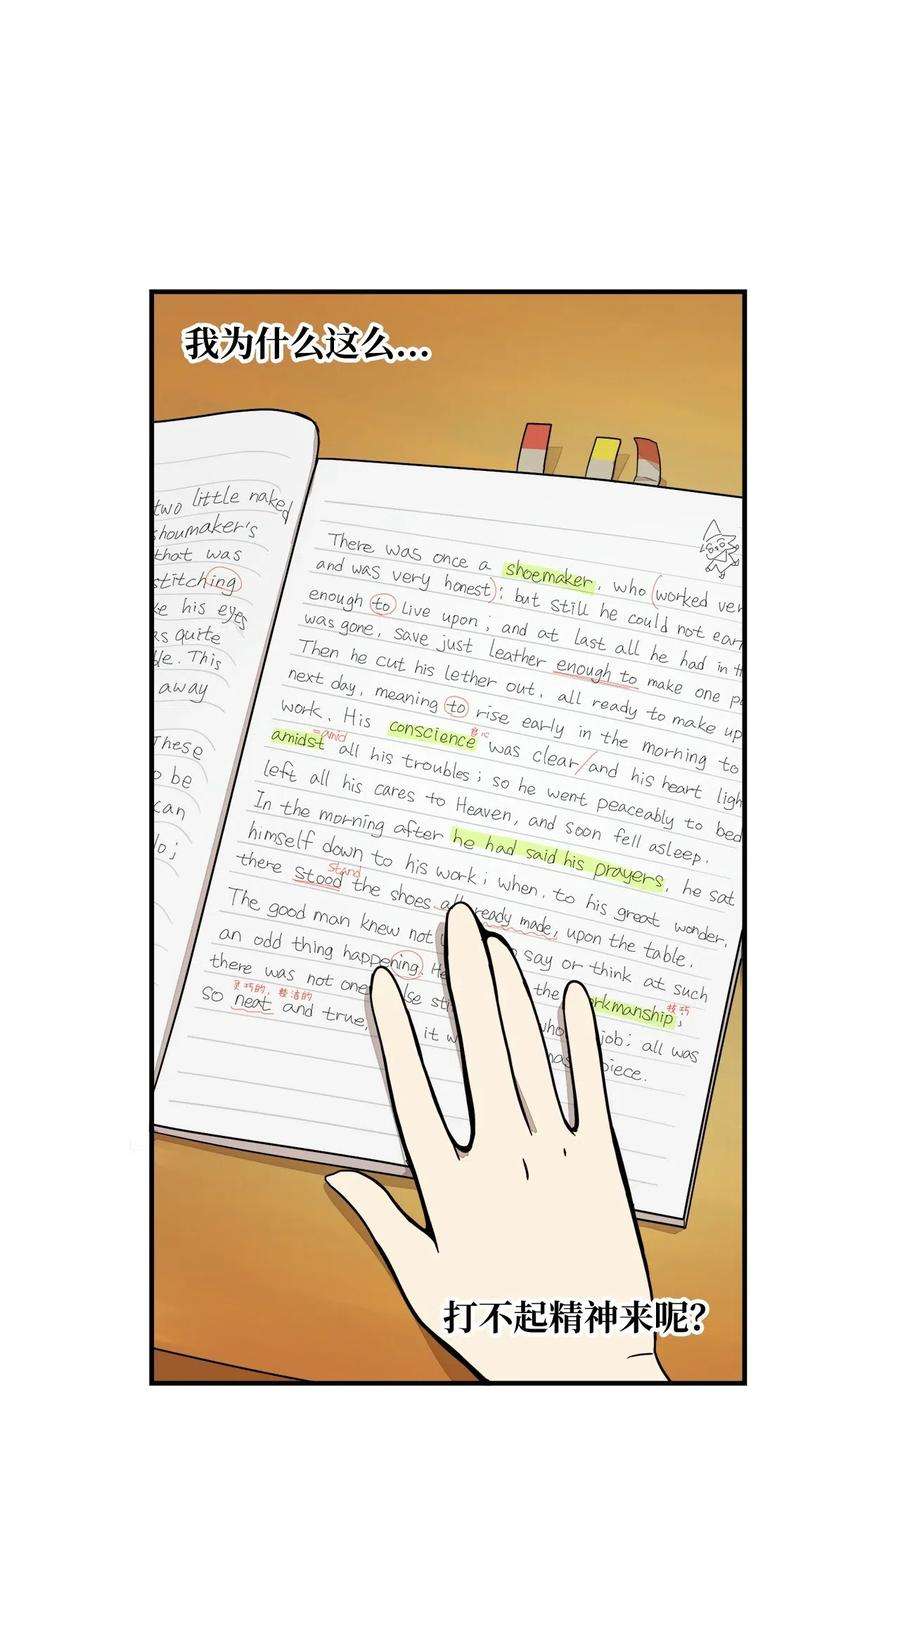 我为什么这么…
two little naked
shoumaker's
that was
stitching
his eyes
quite
This
away
These
be
can
There was once a shoemaker, who worked
and was very honest; but still he could not
enough to live upon; and at last all he had in
was gone, save just leather enough to make one
Then he cut his lether out, all ready to make up
next day, meaning to rise early in the morning to
work. His conscience was clear/and his heart
=amid
amidst all his troubles; so he went peaceably to bed
left all his cares to Heaven, and soon fell asleep.
In the morning after he had said his prayers, he sat
himself down to his work; when, to his great wonder,
stand
there stood the shoes all ready made, upon the table.
The good man knew not say or think at such
an odd thing happening. the workmanship;
技巧
there was not job; all was
灵巧的, 整洁的
so neat and true, it
打不起精神来呢?